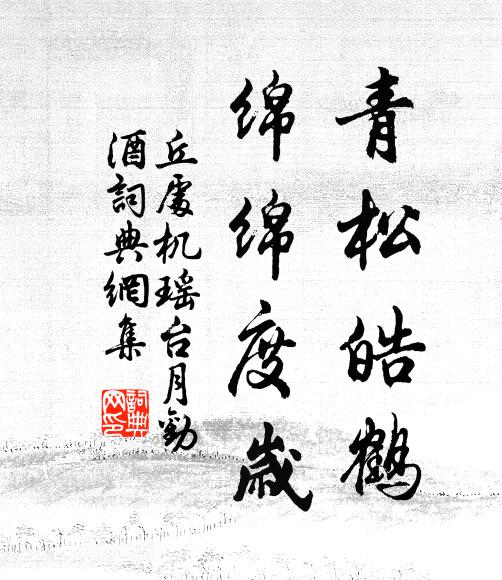 青松皓鹤
绵绵度岁
丘處机瑶台月勸
酒詞典網集
詞典
网印